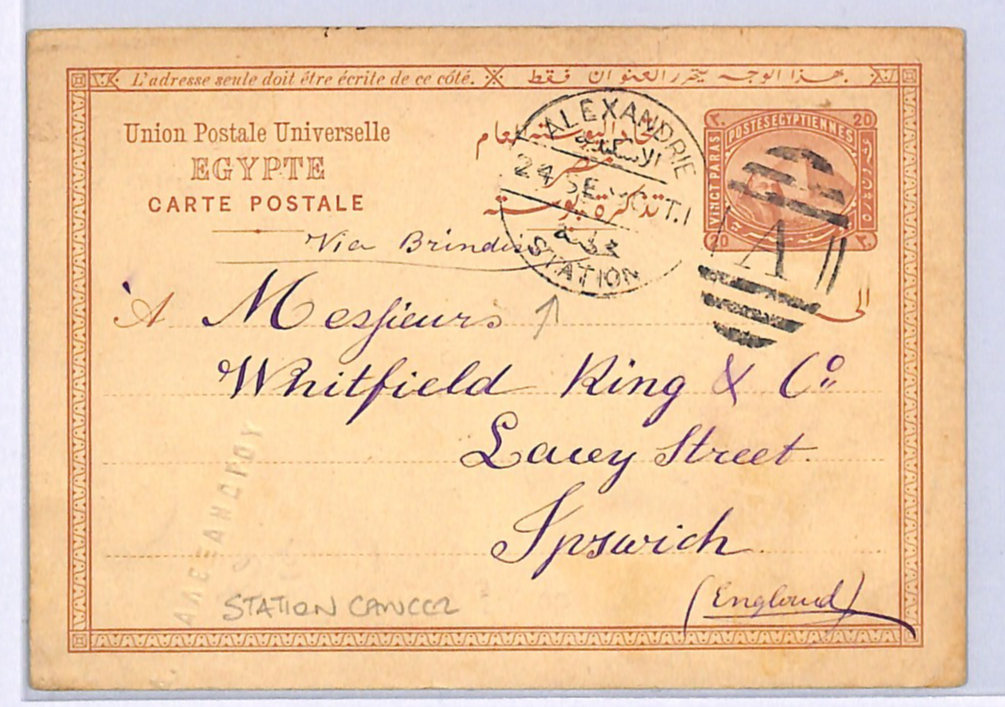 L'adresse seule doit être écrite de ce côté. بهذا الوجه يتحرر العنوان فقط
Union Postale Universelle
EGYPTE
CARTE POSTALE
مصر
تذكرة بوستة
ALEXANDRIE
الاسكندرية
24 SE T.I
محطة
STATION
POSTES EGYPTIENNES
VINGT PARAS
20
٢٠
20
٢٠
A
Via Brindisi
الى
A Messieurs
Whitfield King & Co
Lacey Street
Ipswich
(England)
STATION CANCEL